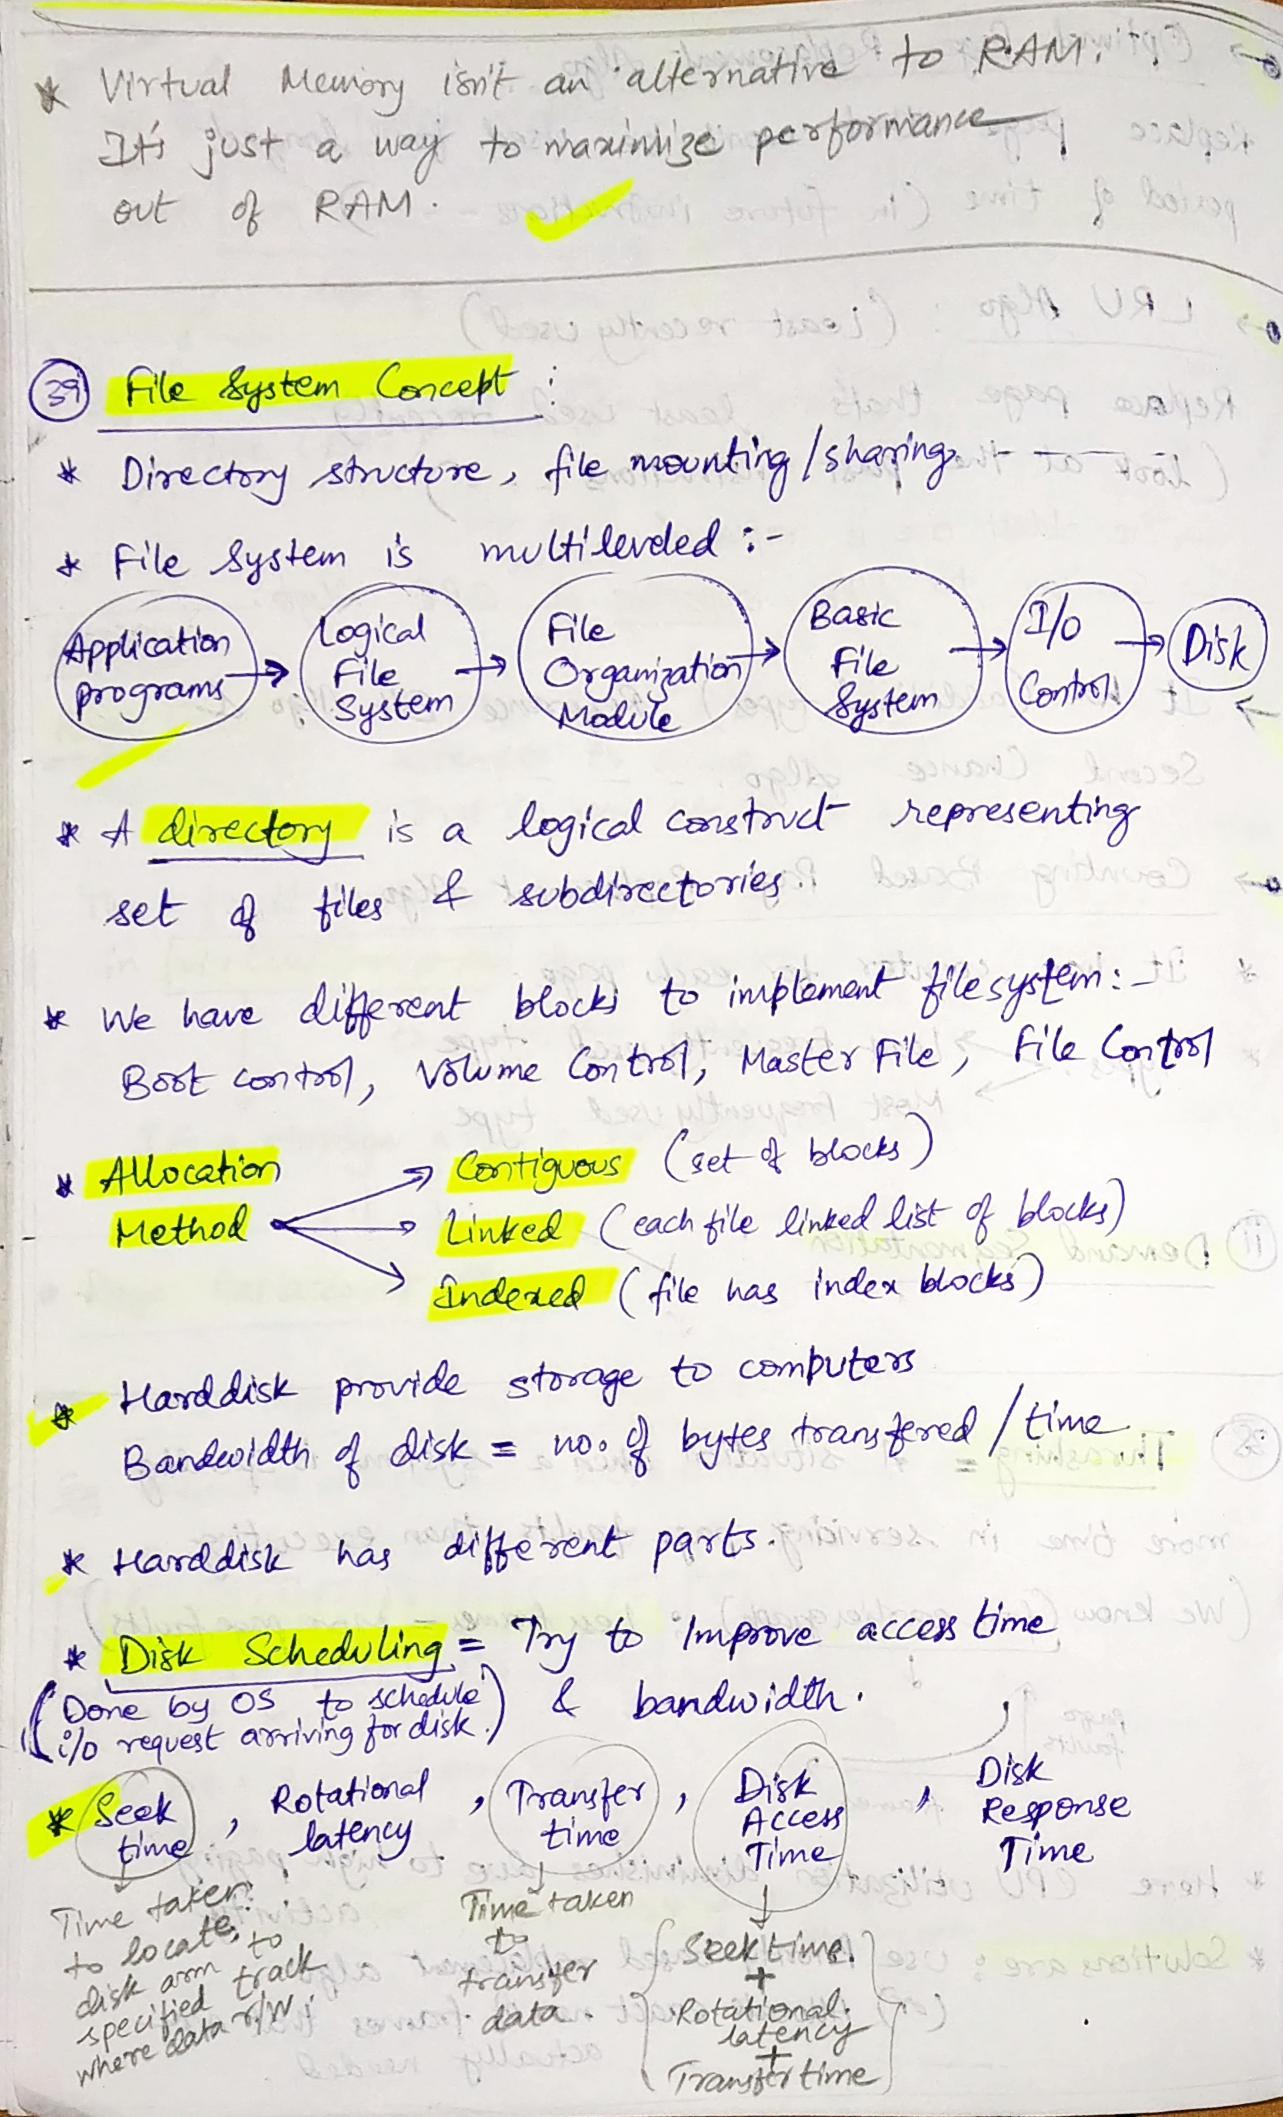 * Virtual Memory isn't an alternative to RAM.
It's just a way to maximize performance
out of RAM.
39 File System Concept :
* Directory structure, file mounting / sharing
* File System is multileveled :-
Application programs → Logical File System → File Organization Module → Basic File System → I/O Control → Disk
* A directory is a logical construct representing
set of files & subdirectories.
* We have different blocks to implement filesystem :-
Boot control, Volume Control, Master File, File Control
* Allocation Method
→ Contiguous (set of blocks)
→ Linked (each file linked list of blocks)
→ Indexed (file has index blocks)
* Harddisk provide storage to computers
Bandwidth of disk = no. of bytes transfered / time
* Harddisk has different parts.
* Disk Scheduling = Try to Improve access time
& bandwidth.
(Done by OS to schedule
i/o request arriving for disk.)
* Seek time, Rotational latency, Transfer time, Disk Access Time, Disk Response Time
Time taken
to locate
disk arm to
specified track
where data r/w.
Time taken
to
transfer
data.
Seek time.
+
Rotational
latency
+
Transfer time